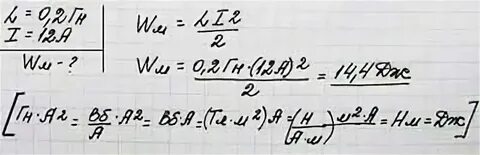 L = 0,2 Гн
I = 12 А
Wм - ?
Wм = LI2/2
Wм = 0,2 Гн·(12А)2/2 = 14,4 Дж
[Гн·А2 = Вб/А·А2 = Вб·А = (Тл·м2)А = (Н/А·м) м2·А = Нм = Дж]